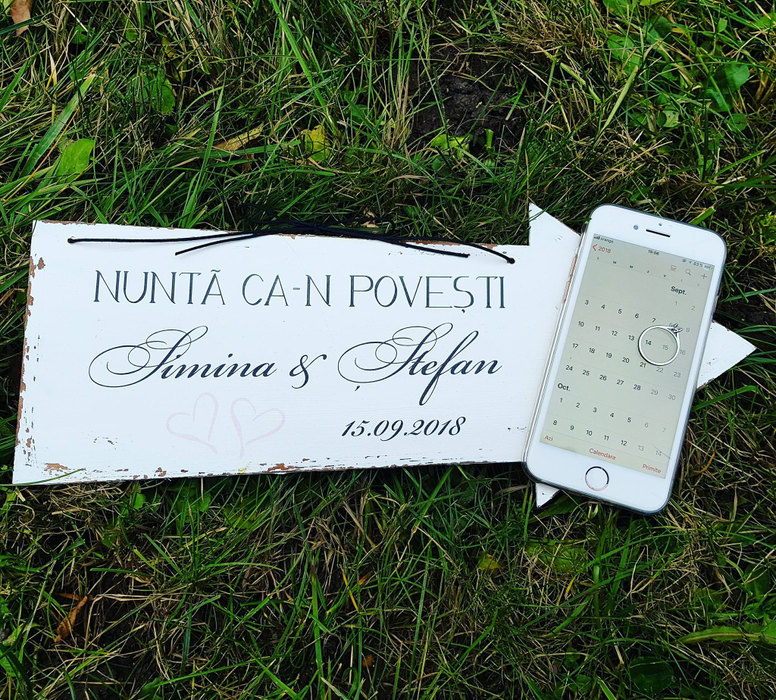 NUNTĂ CA-N POVEȘTI
Simina & Ștefan
15.09.2018
2018
Sept.
3 4 5 6 7 8 9
10 11 12 13 14 15 16
17 18 19 20 21 22 23
24 25 26 27 28 29 30
Oct.
1 2 3 4 5 6 7
8 9 10 11 12 13 14
Azi Calendare Primite